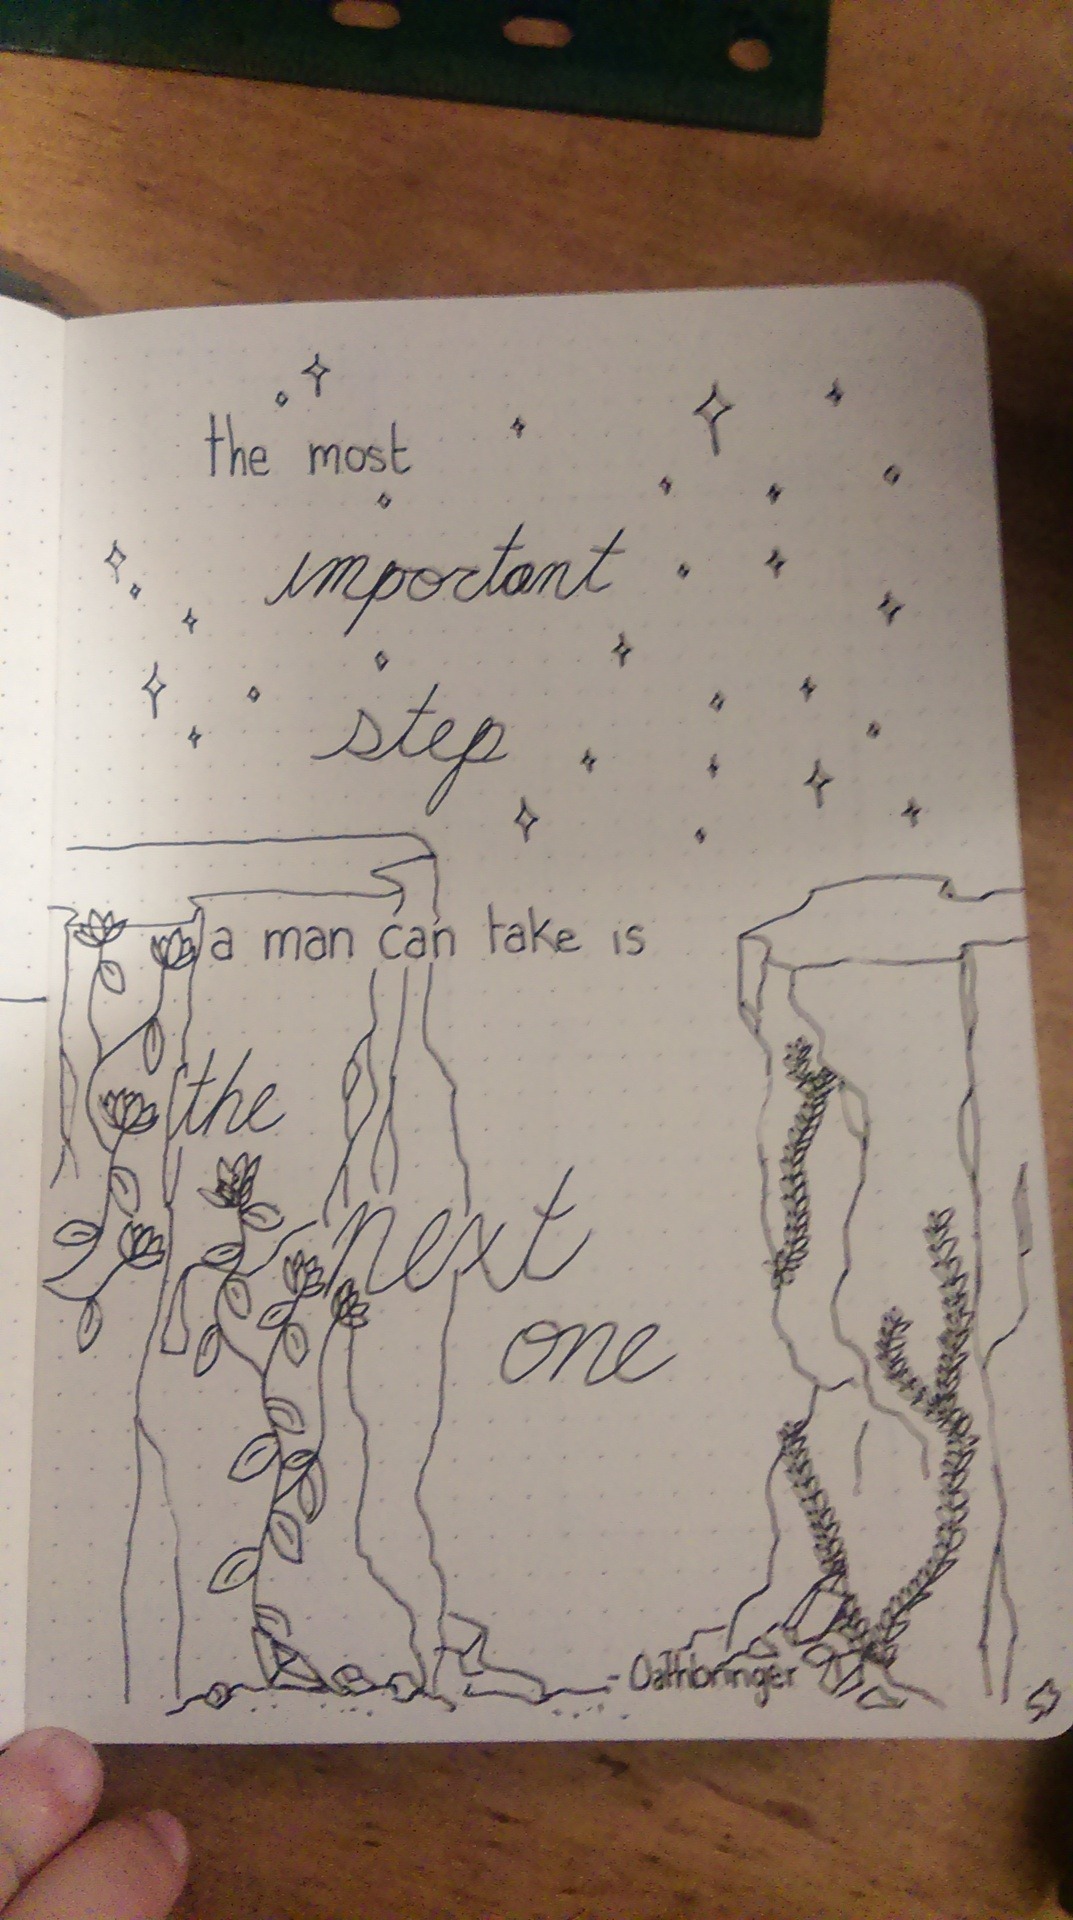 the most
important
step
a man can take is
the
next
one
- Oathbringer